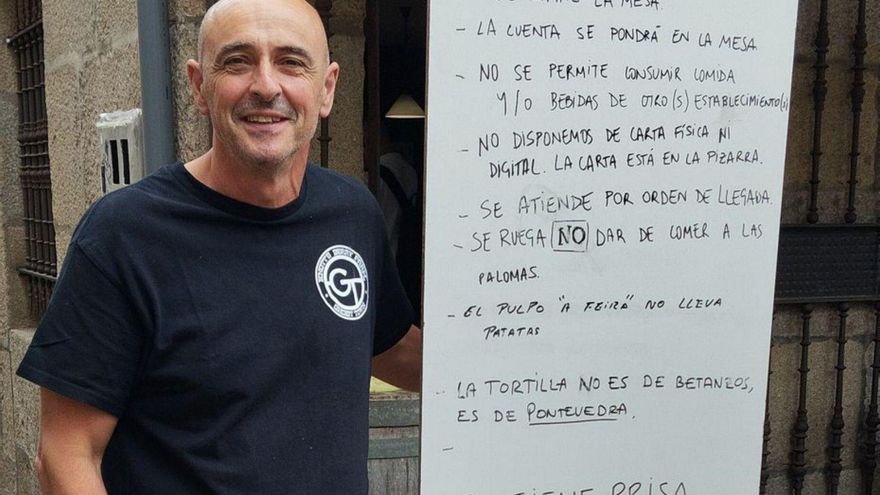 LA MESA.
- LA CUENTA SE PONDRÁ EN LA MESA.
- NO SE PERMITE CONSUMIR COMIDA
Y/O BEBIDAS DE OTRO(S) ESTABLECIMIENTO(S)
- NO DISPONEMOS DE CARTA FÍSICA NI
DIGITAL. LA CARTA ESTÁ EN LA PIZARRA.
- SE ATIENDE POR ORDEN DE LLEGADA.
- SE RUEGA NO DAR DE COMER A LAS
PALOMAS.
- EL PULPO "A FEIRA" NO LLEVA
PATATAS
- LA TORTILLA NO ES DE BETANZOS,
ES DE PONTEVEDRA.
-
TIENE PRISA
GT